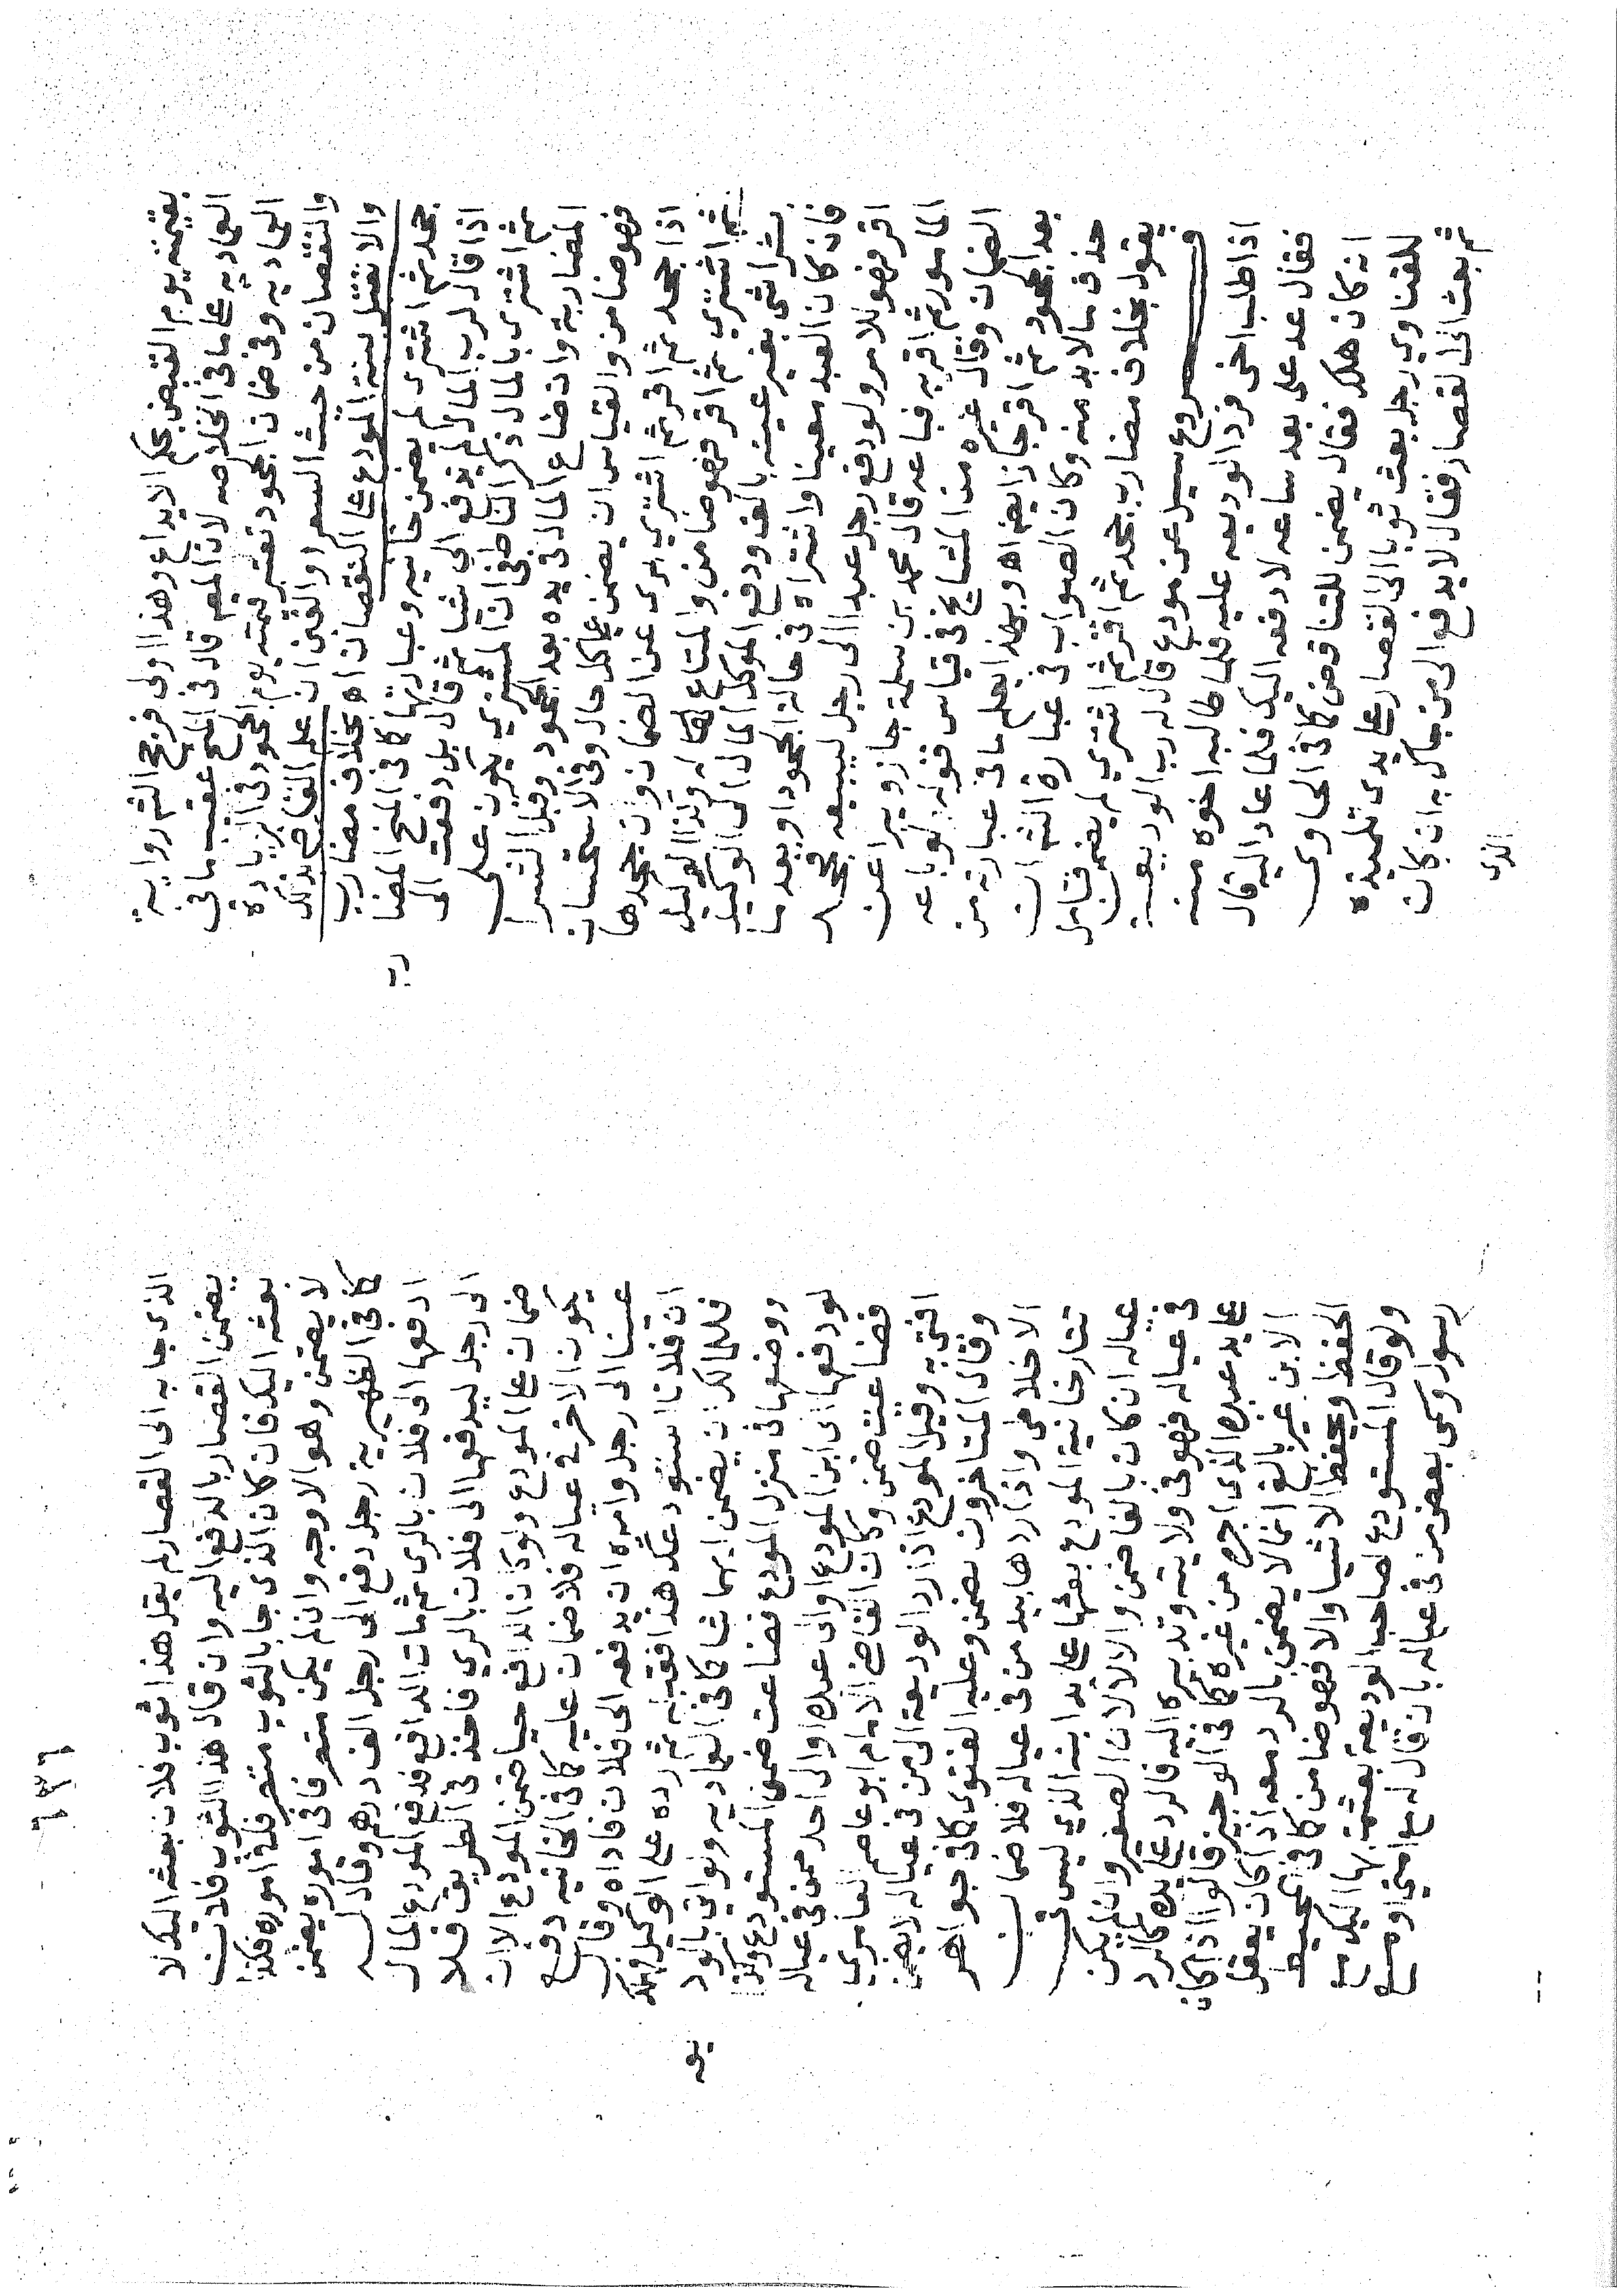 بقيمته يوم القبض بحكم الايداع وهذا اولى فرجح الثم رواية
العمادية على ما فى الخلاصه لان المص قال فى المنح عقبه ما فى
العماديه وفى ضمان الجحود تعتبر قيمته يوم الجحود فى الزيادة
والنقصان من حيث السعر (والقن ان علم القاضى بذلك
والا تقبل بينة المودع على النقصان اه بخلاف مضارب
جحد ثم اشترى لم يضمن خانيه وعبارتها كما فى المنح المضا
رب
اذا قال لرب المال لم تدفع الي شيا ثم قال بلى دفعت الى
ثم اشترى بالمال ذكر الناطفى ان المشتري يكون على
المضاربة وان ضاع المال فى يده بعد الجحود وقبل الشرا
فهو ضامن والقياس ان يضمن على كل حال وفى الاستحسان
اذا جحد ثم اقر ثم اشتري برى عن الضمان وان جحدها
ثم اشتري ثم اقر فهو ضامن والمتاع له وكذا الوكيل
بشرا شى بغير عينه بالف ودفع الموكل المال الى الوكيل
فان كان العبد معينا واشتراه فى حالة الجحود او بعد ما
اقر فهو للامر ولو دفع رجل عبدا الى رجل ليبيعه فجحد
المامور ثم اقر به فباعه قال محمد بن سلمة جاز ويبرا عن
الضمان وقال غيره من المشايخ فى قياس قوله لو باعه
بعد الجحود ثم اقر جاز ايضا اه وبهذا يعلم ما فى عبارته من
حذف ما لابد منه وكان الصواب فى عبارة الثم ان
يقول بخلاف مضارب جحد ثم اقر ثم اشتري لم يضمن فتامل
فروع سيل عن مودع قال له رب الوديعة
اذا طلب اخى فرد الوديعه عليه فلما طالبه اخوه منه
فقال عد على بعد ساعه لادفعه اليك فلما عاد اليه قال
انه كان هلك فقال يضمن للتناقض كما فى الحاوى
للفتاوي رجل بعث ثوبا الى القصار على يدى تلميذه
ثم بعث الى القصار فقال لا يدفع الى من جاك به ان كان
الذى
الذى جا به الى القصار لم يقل هذا ثوب فلان بعثه اليك لا
يضمن القصار بالدفع اليه وان قال هذا الثوب فلان
بعثه اليك فان كان الذى جا بالثوب متصرفا فى اموره فكذا
لا يضمن وهو الاوجه وان لم يكن متصرفا فى اموره يضمن
كما فى الظهيرية رجل دفع الى رجل الف درهم وقال له
ادفعها الى فلان بالرى ثم مات الدافع فدفع المودع المال
الى رجل ليدفعها الى فلان بالري فاخذ فى الطريق فلا
ضمان على المودع ولو كان الدافع حيا ضمن المودع الا ان
يكون الاخر فى عياله فلا ضمان عليه كما فى الخانيه دفع
عينا الى رجل وامره ان يدفعه الى فلان فاداه وقال
ان فلانا استودعك هذا فقبله ثم رده على الوكيل فهلك
فللمالك ان يضمن ايهما شا كما فى العماديه ولو اتى بالود
يعه
ووضعها فى منزل المودع فضاعت ضمن المستودع وكذا
لو دفعها الى ابن المودع او الى عبده او الى احد ممن فى عياله
فضاعت ضمن وكان القاضى الامام ابو عاصم العامري
افتى به وقيل المودع اذا رد الوديعة الى من فى عياله لا يضمن
وقال المتاخرون يضمن وعليه الفتوى كما فى جواهر
الاخلاطى واذا ردها بيد من فى عياله فلا ضمان
تتارخانية المودع بعثها على يد ابنه الذي ليس فى
عياله ان كان بالغا ضمن والا لا لان الصغير وان لم يكن
فى عياله فهو فى ولايته وتدبيره اليه فالرد على يده كالرد
على يد عبده الذى اجره من غيره كما فى الوجيز قالوا اذا كان
الابن غير بالغ انما لا يضمن بالرد معه اذا كان يعقل
الحفظ ويحفظ الاشيا والا فهو ضامن كما فى المحيط
ولو قال المستودع لصاحب الوديعة بعثت بها اليك مع
رسولى وسمى بعض من فى عياله بان قال له مع امتي او مع